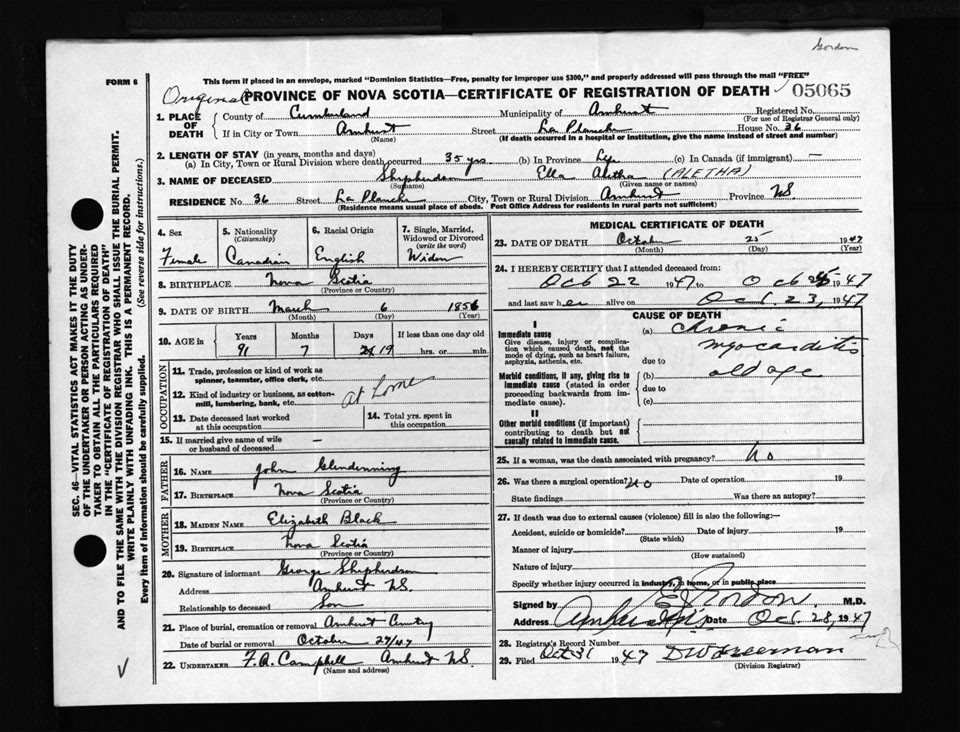 Gordon
FORM 6
This form if placed in an envelope, marked "Dominion Statistics—Free, penalty for improper use $300," and properly addressed will pass through the mail "FREE"
Original PROVINCE OF NOVA SCOTIA—CERTIFICATE OF REGISTRATION OF DEATH 05065
1. PLACE OF DEATH County of Cumberland Municipality of Amherst Registered No.
(For use of Registrar General only)
If in City or Town Amherst Street La Planche House No. 36
(Name) (If death occurred in a hospital or institution, give the name instead of street and number)
2. LENGTH OF STAY (in years, months and days)
(a) In City, Town or Rural Division where death occurred 35 yrs. (b) In Province Life (c) In Canada (if immigrant) —
3. NAME OF DECEASED Shipherdson Ella Aletha (ALETHA)
(Surname) (Given name or names)
RESIDENCE No. 36 Street La Planche City, Town or Rural Division Amherst Province N.S.
(Residence means usual place of abode. Post Office Address for residents in rural parts not sufficient)
4. Sex Female
5. Nationality (Citizenship) Canadian
6. Racial Origin English
7. Single, Married, Widowed or Divorced (write the word) Widow
8. BIRTHPLACE Nova Scotia
(Province or Country)
9. DATE OF BIRTH March 6 1856
(Month) (Day) (Year)
10. AGE in Years 91 Months 7 Days 19 If less than one day old hrs. or min.
OCCUPATION
11. Trade, profession or kind of work as spinner, teamster, office clerk, etc.
12. Kind of industry or business, as cotton-mill, lumbering, bank, etc. at home
13. Date deceased last worked at this occupation
14. Total yrs. spent in this occupation
15. If married give name of wife or husband of deceased —
FATHER
16. NAME John Glendenning
17. BIRTHPLACE Nova Scotia
(Province or Country)
MOTHER
18. MAIDEN NAME Elizabeth Black
19. BIRTHPLACE Nova Scotia
(Province or Country)
20. Signature of informant George Shipherdson
Address Amherst N.S.
Relationship to deceased Son
21. Place of burial, cremation or removal Amherst Cemetery
Date of burial or removal October 27/47
22. UNDERTAKER F. A. Campbell Amherst N.S.
(Name and address)
MEDICAL CERTIFICATE OF DEATH
23. DATE OF DEATH October 25 1947
(Month) (Day) (Year)
24. I HEREBY CERTIFY that I attended deceased from:
Oct 22 1947 to Oct 1947
and last saw her alive on Oct. 23, 1947
CAUSE OF DEATH
I
Immediate cause
Give disease, injury or complication which caused death, not the mode of dying, such as heart failure, asphyxia, asthenia, etc.
(a) chronic myocarditis
due to
Morbid conditions, if any, giving rise to immediate cause (stated in order proceeding backwards from immediate cause).
(b) old age
due to
(c)
II
Other morbid conditions (if important) contributing to death but not causally related to immediate cause.
25. If a woman, was the death associated with pregnancy? No
26. Was there a surgical operation? No Date of operation 19
State findings Was there an autopsy?
27. If death was due to external causes (violence) fill in also the following:—
Accident, suicide or homicide? Date of injury 19
(State which)
Manner of injury
(How sustained)
Nature of injury
Specify whether injury occurred in industry, in home, or in public place
Signed by Gordon M.D.
Address Amherst N.S. Date Oct. 28, 1947
28. Registrar's Record Number
29. Filed Oct 31 1947 D W Freeman
(Division Registrar)
SEC. 46—VITAL STATISTICS ACT MAKES IT THE DUTY
OF THE UNDERTAKER OR PERSON ACTING AS UNDER-
TAKER TO OBTAIN ALL THE PARTICULARS REQUIRED
IN THE "CERTIFICATE OF REGISTRATION OF DEATH"
AND TO FILE THE SAME WITH THE DIVISION REGISTRAR WHO SHALL ISSUE THE BURIAL PERMIT.
WRITE PLAINLY WITH UNFADING INK. THIS IS A PERMANENT RECORD.
Every item of information should be carefully supplied. (See reverse side for instructions.)